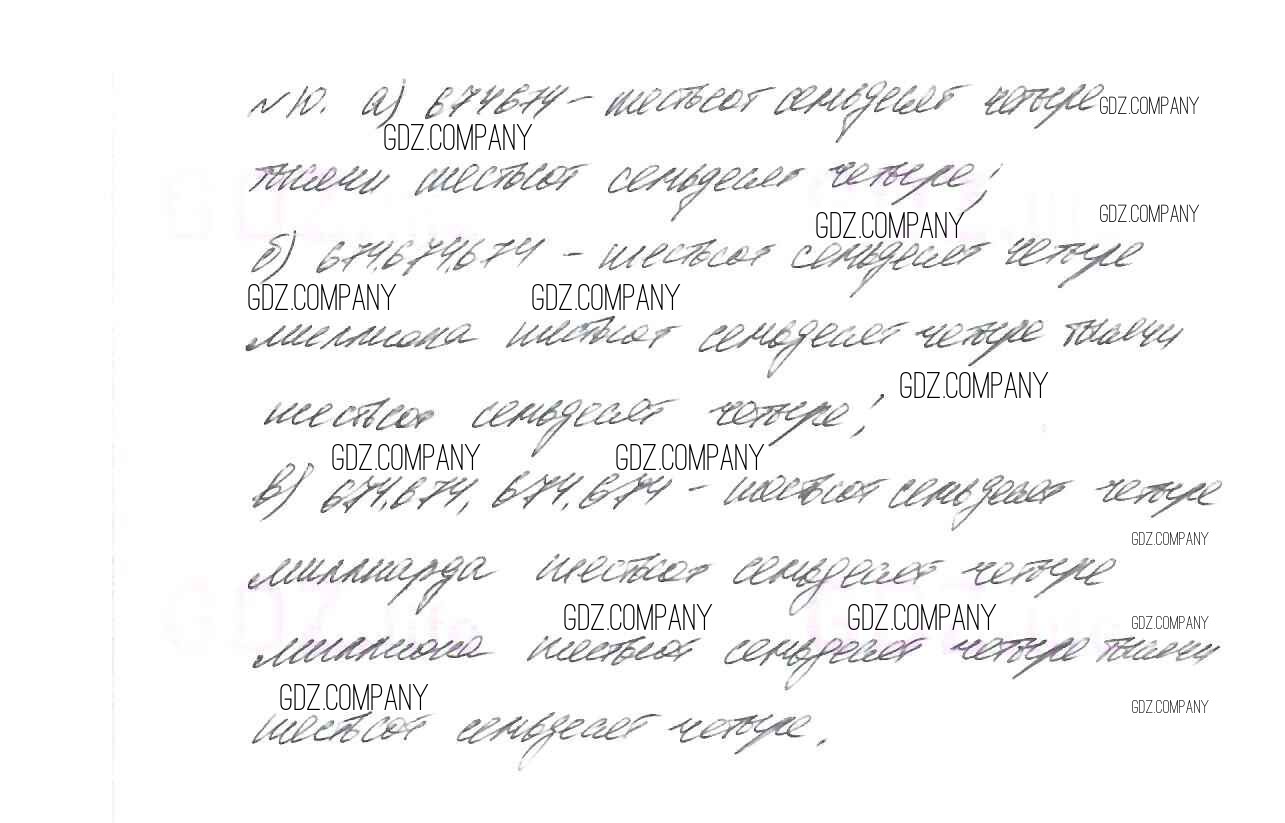 №10. а) 674674 – шестьсот семьдесят четыре GDZ.COMPANY
GDZ.COMPANY
тысячи шестьсот семьдесят четыре;
GDZ.COMPANY GDZ.COMPANY
б) 674.674.674 – шестьсот семьдесят четыре
GDZ.COMPANY GDZ.COMPANY
миллиона шестьсот семьдесят четыре тысячи
GDZ.COMPANY
шестьсот семьдесят четыре;
GDZ.COMPANY GDZ.COMPANY
в) 674.674, 674.674 – шестьсот семьдесят четыре
GDZ.COMPANY
миллиарда шестьсот семьдесят четыре
GDZ.COMPANY GDZ.COMPANY GDZ.COMPANY
миллиона шестьсот семьдесят четыре тысячи
GDZ.COMPANY GDZ.COMPANY
шестьсот семьдесят четыре.